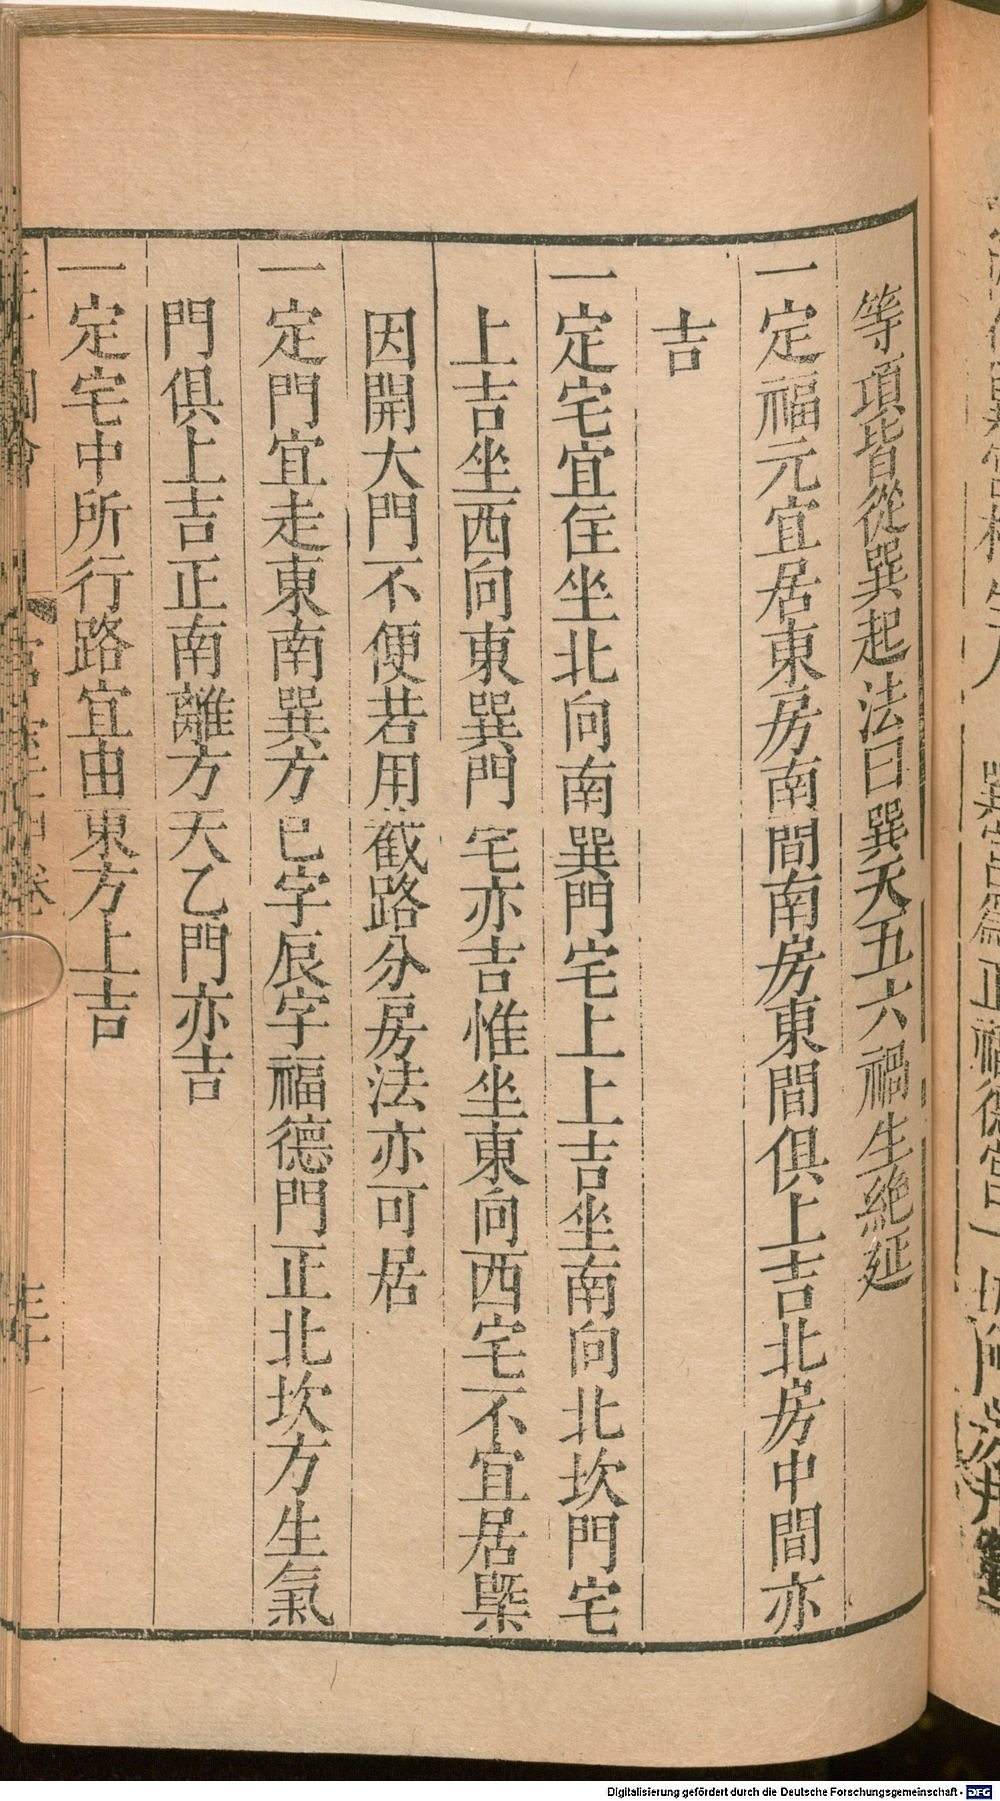 等項皆從巽起法曰巽天五六禍生絶延
一定福元宜居東房南間南房東間俱上吉北房中間亦
吉
一定宅宜住坐北向南巽門宅上上吉坐南向北坎門宅
上吉坐西向東巽門宅亦吉惟坐東向西宅不宜居槩
因開大門不便若用截路分房法亦可居
一定門宜走東南巽方巳字辰字福德門正北坎方生氣
門俱上吉正南離方天乙門亦吉
一定宅中所行路宜由東方上吉
Digitalisierung gefördert durch die Deutsche Forschungsgemeinschaft - DFG